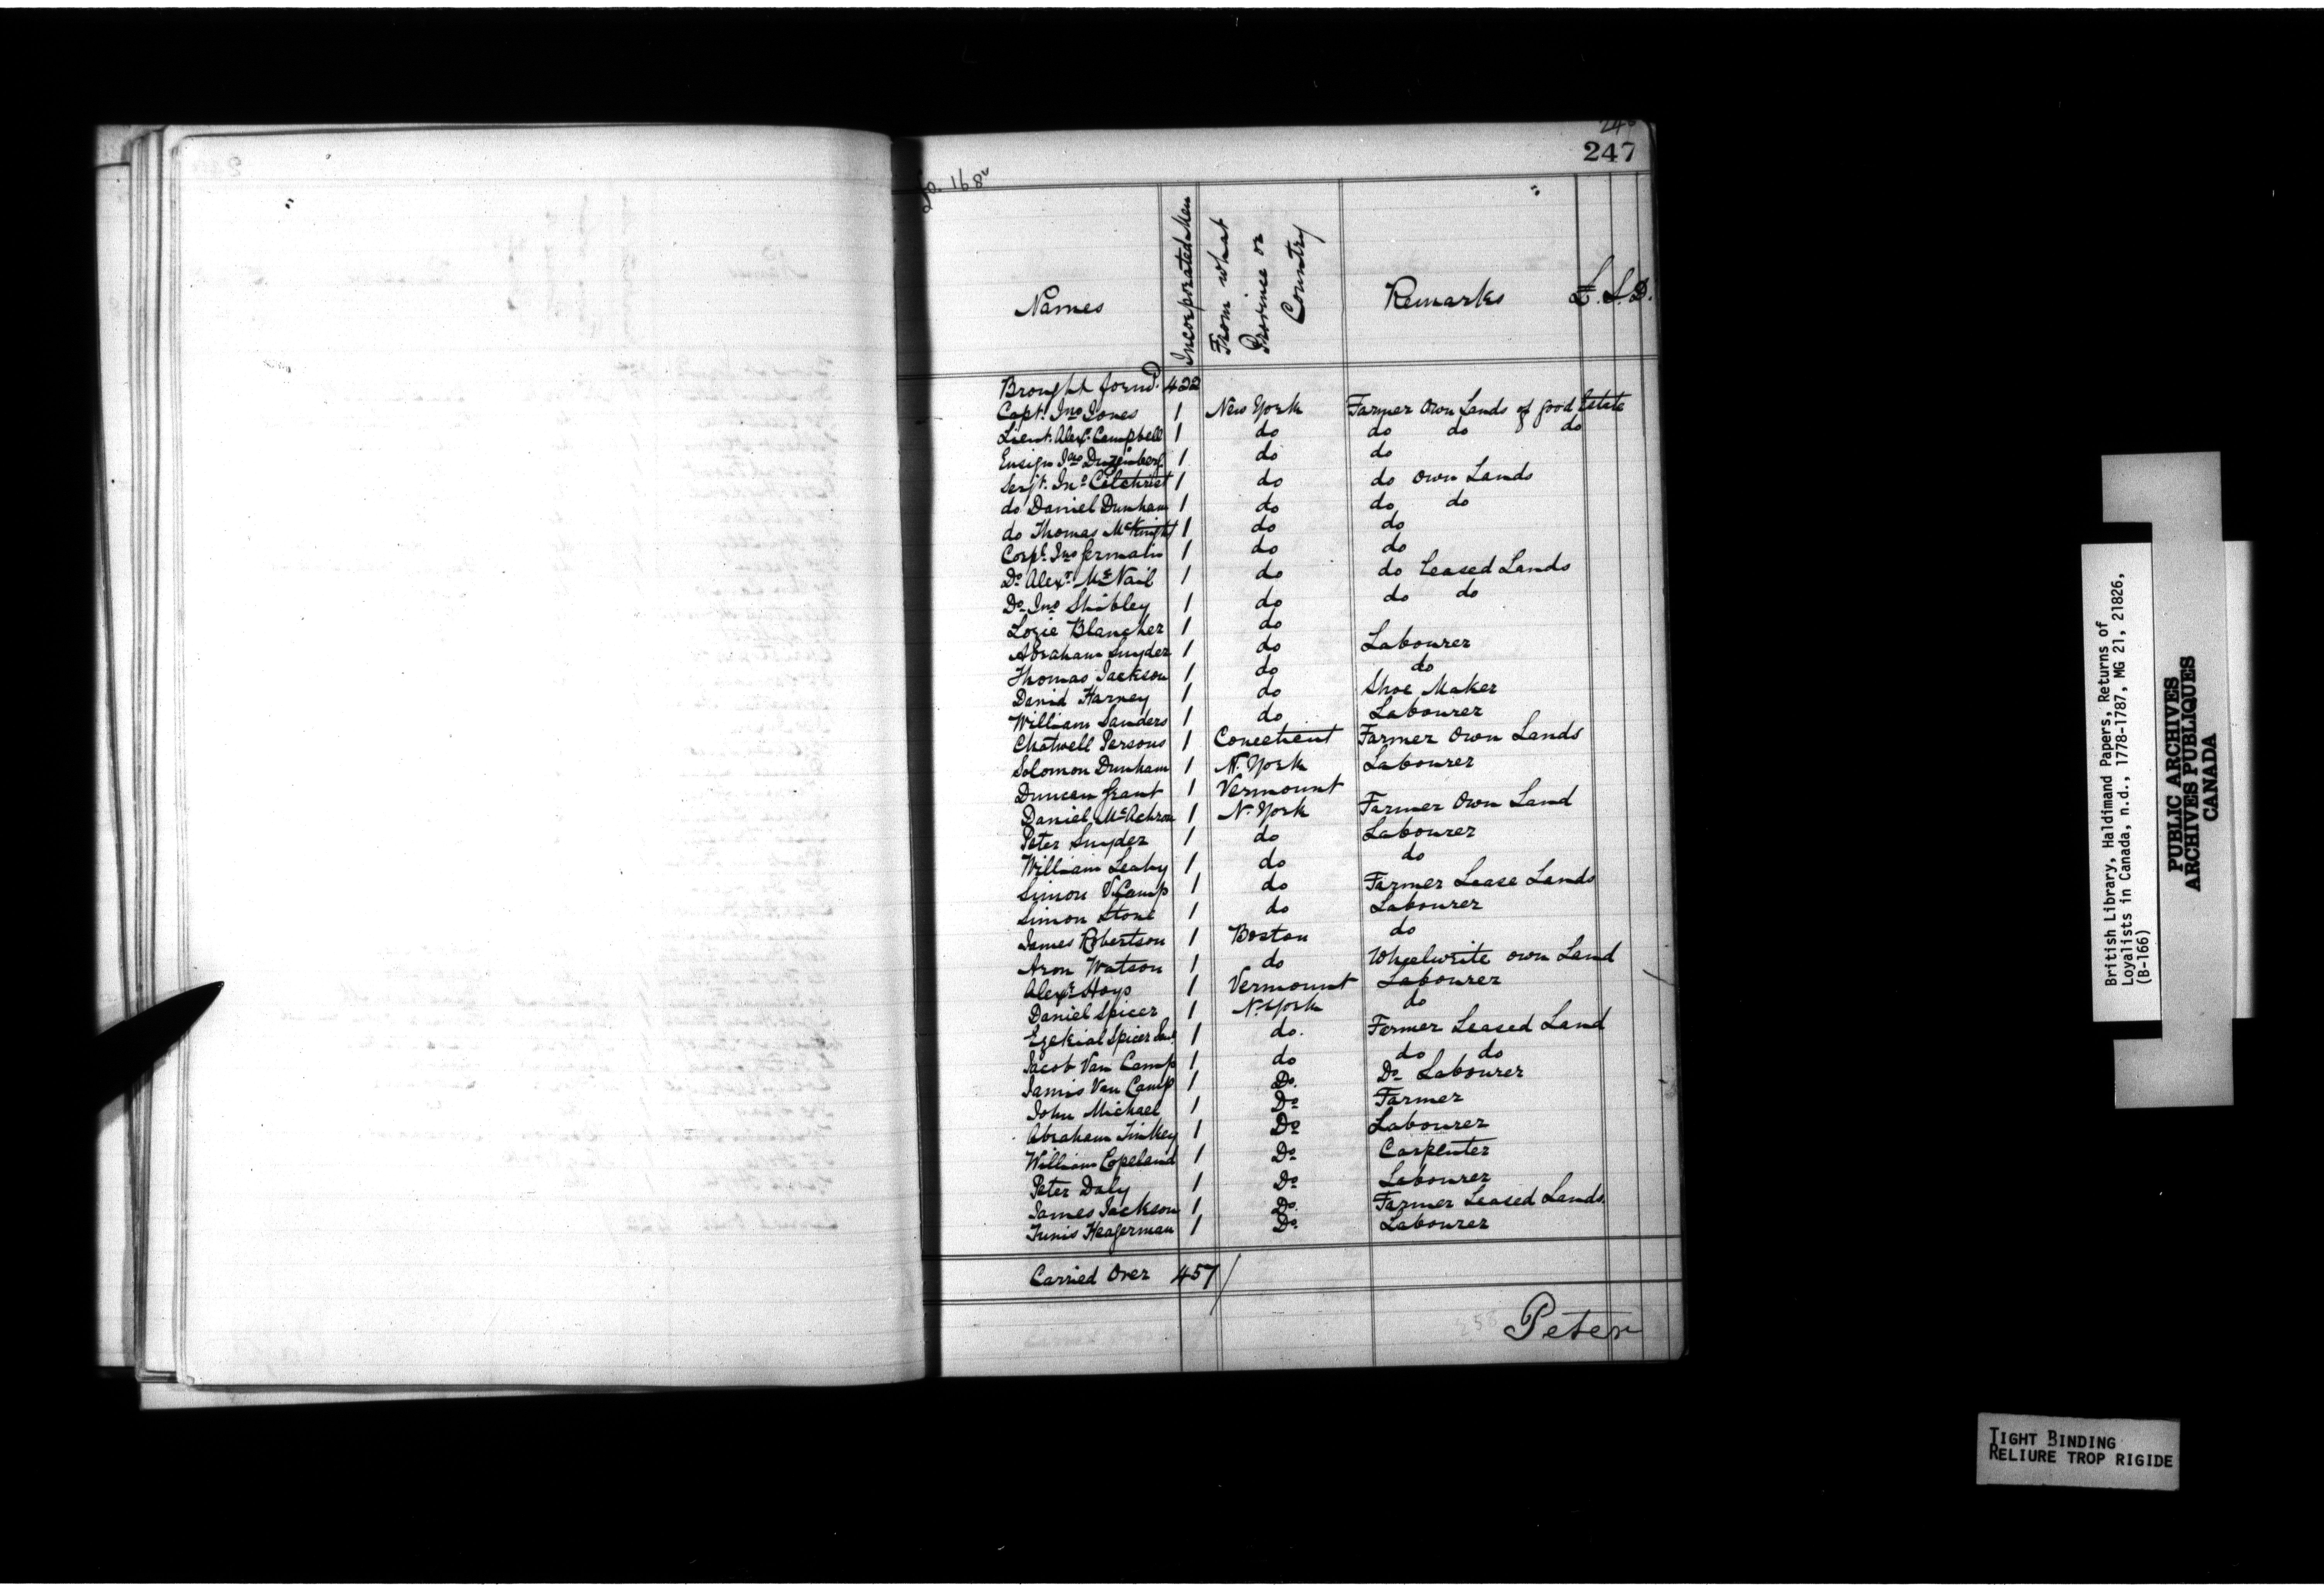 247
fo. 168
Names Incorporated Men From what Province or Country Remarks £. S. D.
Brought forwd. 422
Capt. Jno Jones 1 New York Farmer Own Lands of good Estate
Lieut. Alexr. Campbell 1 do do do do
Ensign Jno Duzenberg 1 do do
Serjt. Jno Gilchrist 1 do do own Lands
do Daniel Dunham 1 do do do
do Thomas McKnight 1 do do
Corpl. Jno Germain 1 do do
Do Alexr. McNail 1 do do Leased Lands
Do Jno Shibley 1 do do do
Lozie Blancher 1 do
Abraham Snyder 1 do Labourer
Thomas Jackson 1 do do
David Harney 1 do Shoe Maker
William Sanders 1 do Labourer
Chatwell Persons 1 Conecticut Farmer Own Lands
Solomon Dunham 1 N. York Labourer
Duncan Grant 1 Vermount
Daniel McAchron 1 N. York Farmer Own Land
Peter Snyder 1 do Labourer
William Leahy 1 do do
Simon V.Camp 1 do Farmer Lease Lands
Simon Stone 1 do Labourer
James Robertson 1 Boston do
Aron Watson 1 do Wheelwrite own Land
Alexr Hoyo 1 Vermount Labourer
Daniel Spicer 1 N. York do
Ezekial Spicer Senr 1 do. Farmer Leased Land
Jacob Van Camp 1 do do do
Jamis Van Camp 1 Do. Do Labourer
John Michael 1 Do Farmer
Abraham Timkey 1 Do Labourer
William Copeland 1 Do Carpenter
Peter Daly 1 Do Labourer
James Jackson 1 Do. Farmer Leased Lands.
Tunis Heagerman 1 Do. Labourer
Carried Over 457
258
Peter
British Library, Haldimand Papers, Returns of
Loyalists in Canada, n.d., 1778-1787, MG 21, 21826,
(B-166)
PUBLIC ARCHIVES
ARCHIVES PUBLIQUES
CANADA
TIGHT BINDING
RELIURE TROP RIGIDE